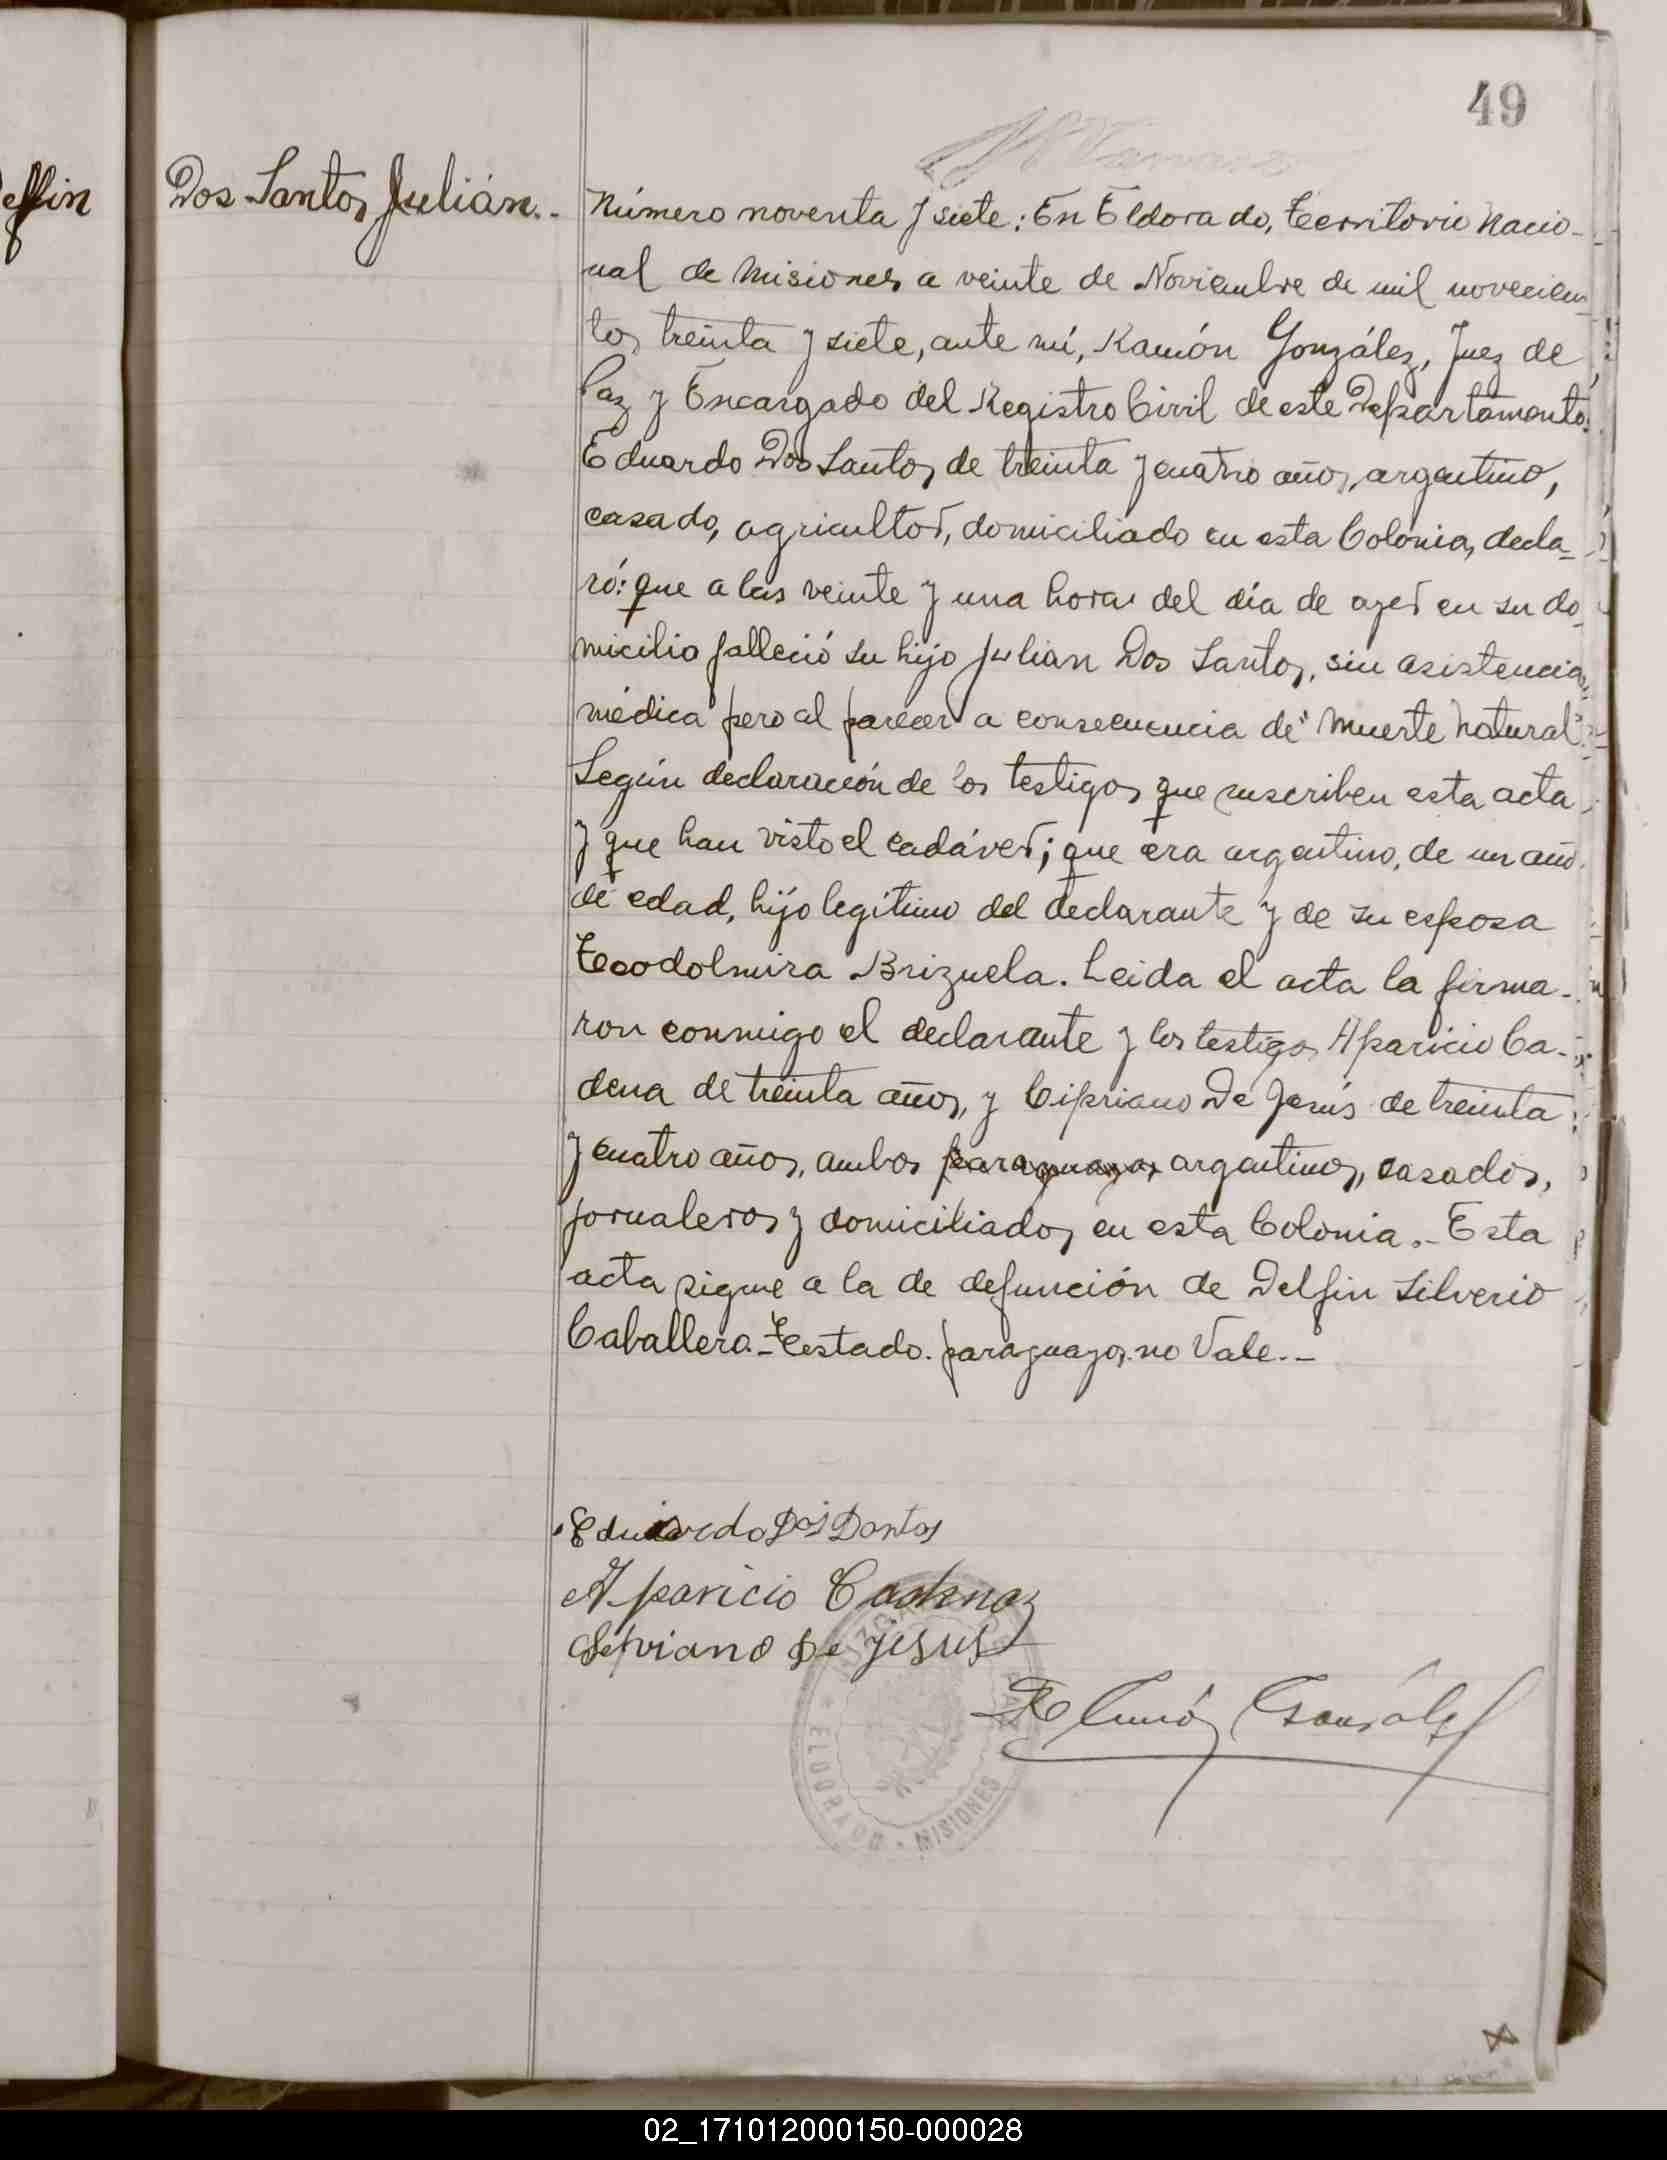 49
effin
Dos Santos Julián.-
Número noventa y siete: En Eldorado, Territorio Nacio-
nal de Misiones a veinte de Noviembre de mil novecien-
tos treinta y siete, ante mí, Ramón González, Juez de
Paz y Encargado del Registro Civil de este Departamento.
Eduardo Dos Santos de treinta y cuatro años, argentino,
casado, agricultor, domiciliado en esta Colonia, decla-
ró: que a las veinte y una horas del día de ayer en su do-
micilio falleció su hijo Julian Dos Santos, sin asistencia
médica pero al parecer a consecuencia de "Muerte natural"
Según declaración de los testigos que suscriben esta acta
y que han visto el cadáver; que era argentino, de un año
de edad, hijo legítimo del declarante y de su esposa
Teodolmira Brizuela. Leida el acta la firma-
ron conmigo el declarante y los testigos Aparicio Ca-
dena de treinta años, y Cipriano De Jesús de treinta
y cuatro años, ambos paraguayos argentinos, casados,
jornaleros y domiciliados en esta Colonia.- Esta
acta sigue a la de defunción de Delfin Silverio
Caballero - Testado. paraguayos. no Vale.-
Eduardo Dos Dantos
Aparicio Cadenaz
Sepriano De jesus
Ramón González
JUZGADO DE PAZ
* ELDORADO - MISIONES
02_171012000150-000028